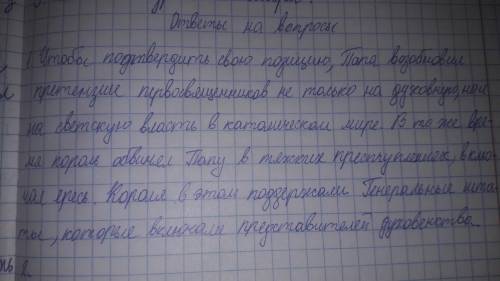 Ответы на вопросы
1. Чтобы подтвердить свою позицию, Папа возобновил
претензии первосвященников не только на духовную, но и
на светскую власть в католическом мире. В то же вре-
мя король обвинял Папу в тяжких преступлениях, вклю-
чая ересь. Короля в этом поддержали Генеральные шта-
ты, которые включали представителей духовенства.
2.